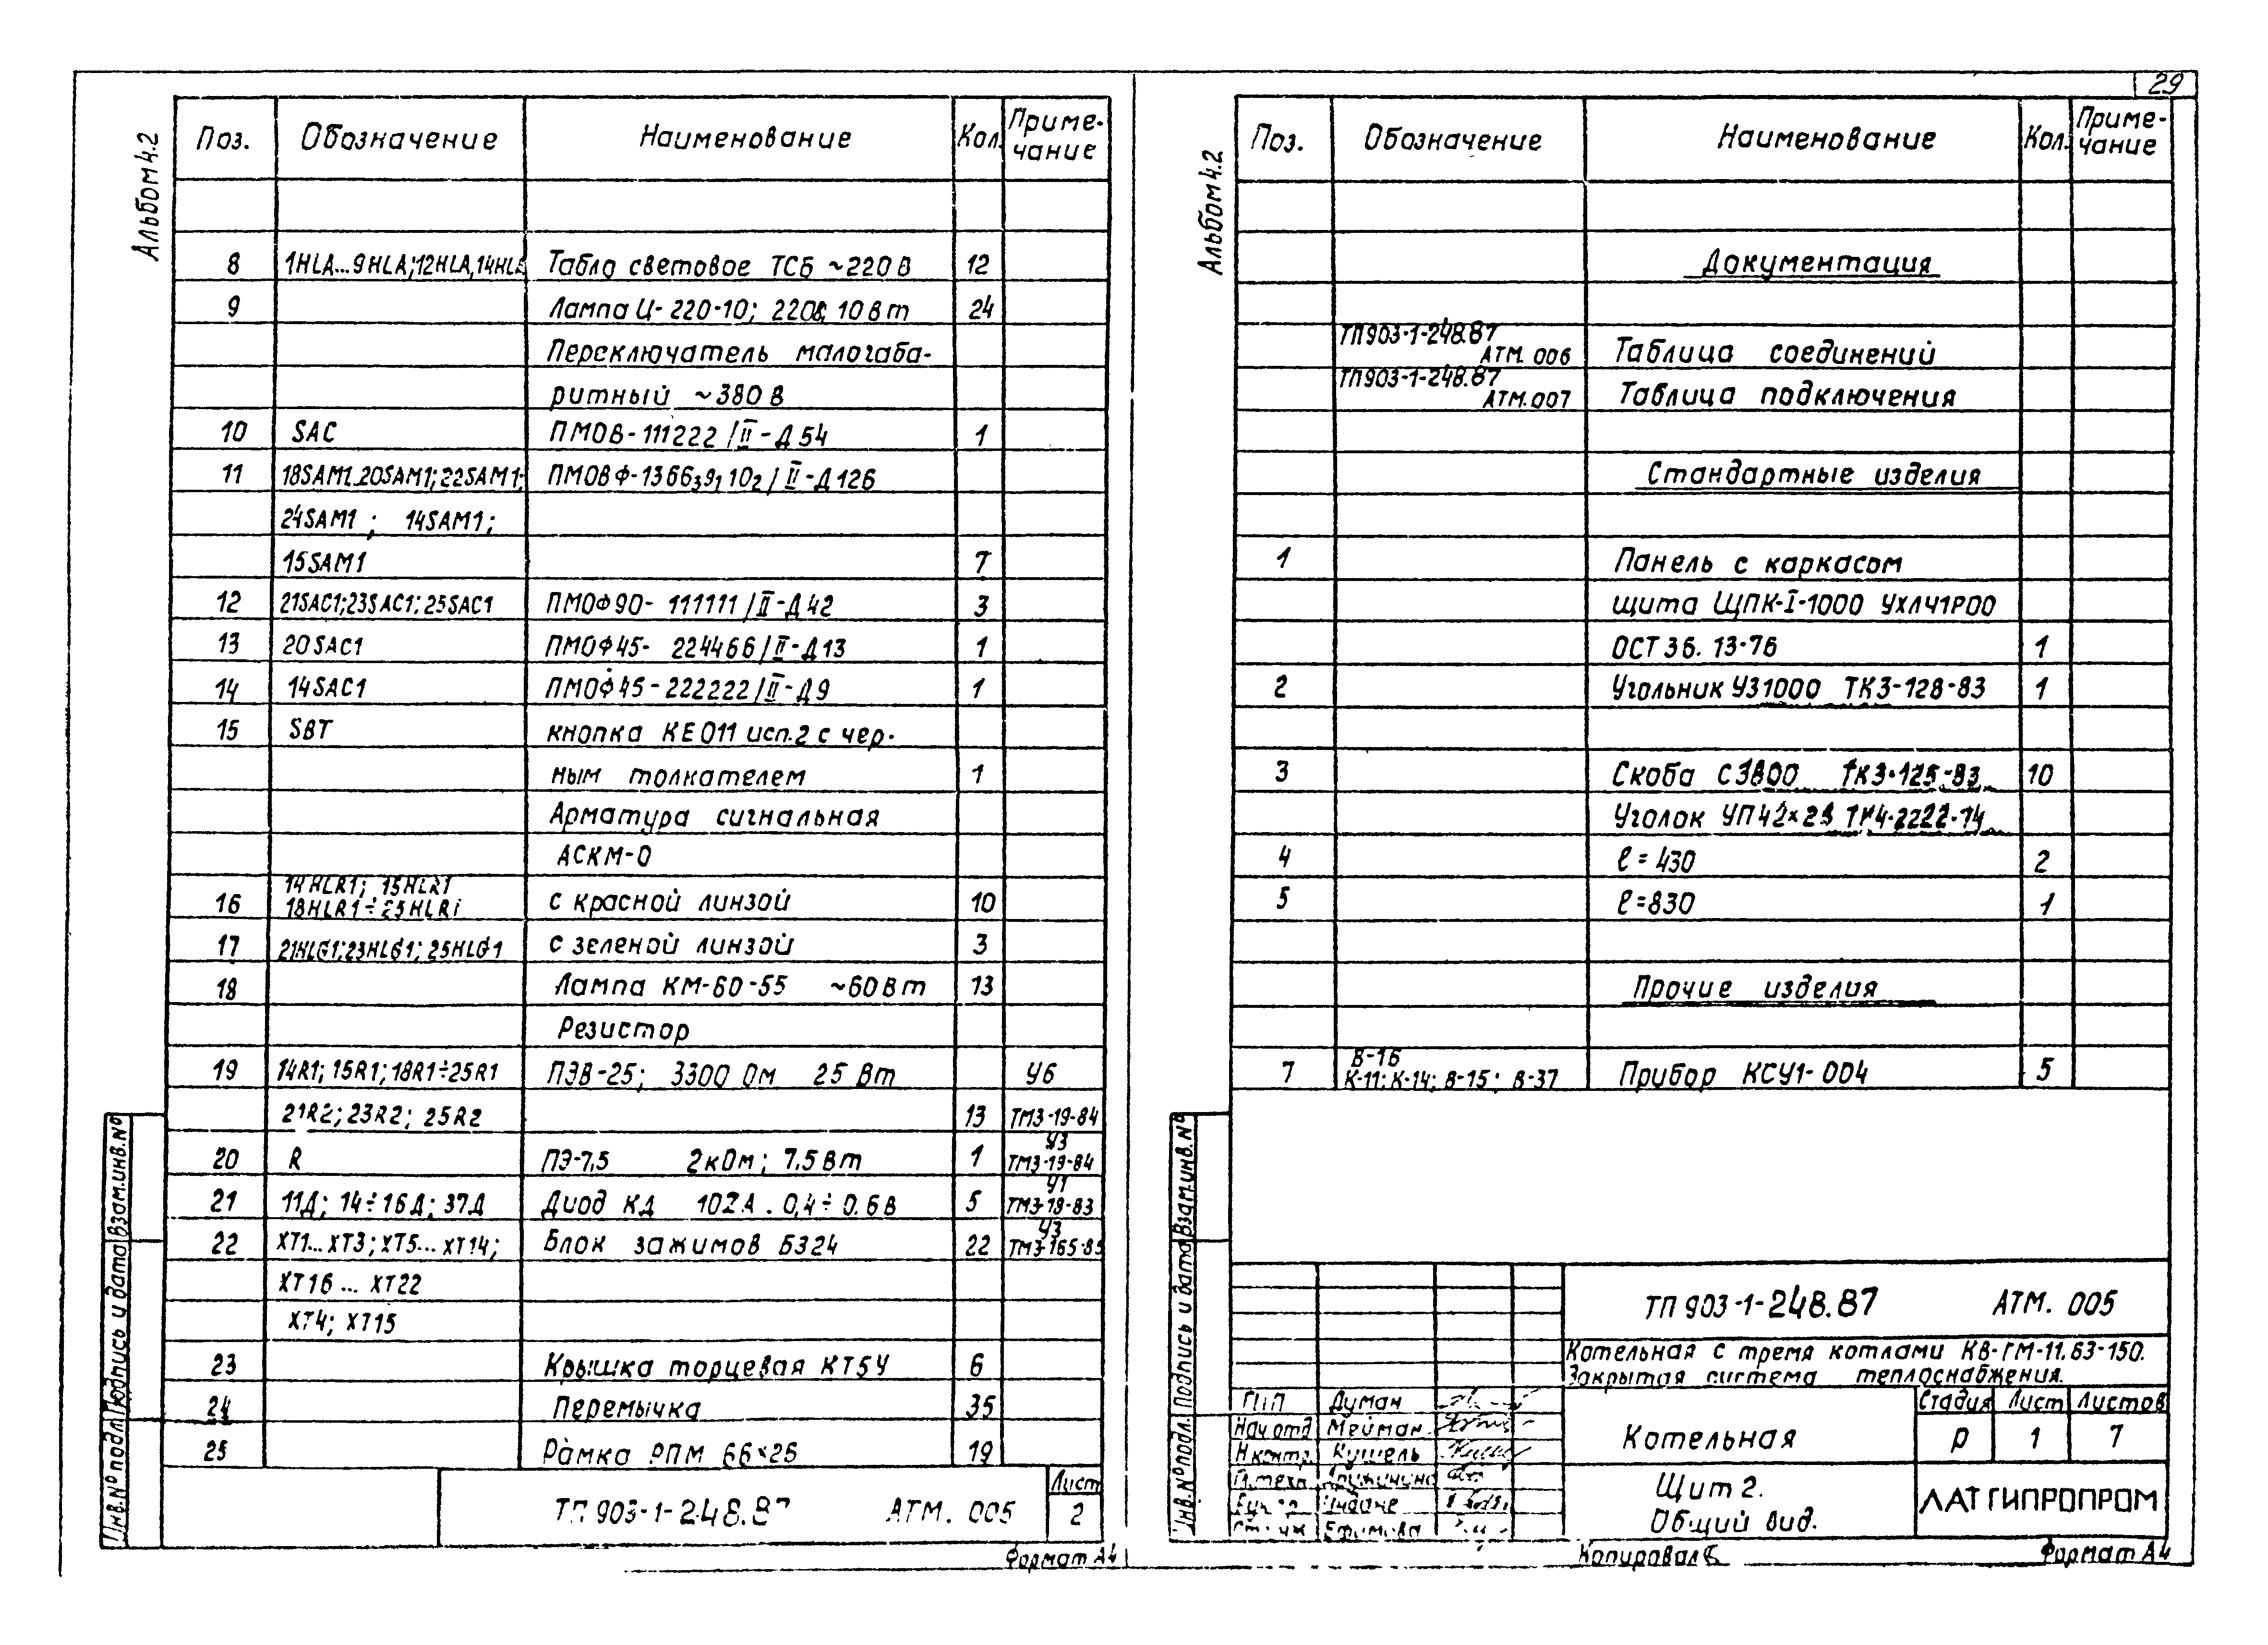 29
Альбом 4.2
Поз. Обозначение Наименование Кол. Приме-
чание
8 1HLA...9HLA;12HLA,14HLA Табло световое ТСБ ~220В 12
9 Лампа Ц-220-10; 220В, 10Вт 24
Переключатель малогаба-
ритный ~380В
10 SAC ПМОВ-111222/II-Д54 1
11 18SAM1...20SAM1;22SAM1; ПМОВФ-1366₃9₁10₂/II-Д126
24SAM1; 14SAM1;
15SAM1 7
12 21SAC1;23SAC1;25SAC1 ПМОФ90-111111/II-Д42 3
13 20SAC1 ПМОФ45-224466/II-Д13 1
14 14SAC1 ПМОФ45-222222/II-Д9 1
15 SBT кнопка КЕ011 исп.2 с чер-
ным толкателем 1
Арматура сигнальная
АСКМ-0
14HLR1; 15HLR1
16 18HLR1÷25HLR1 с красной линзой 10
17 21HLG1;23HLG1;25HLG1 с зеленой линзой 3
18 Лампа КМ-60-55 ~60Вт 13
Резистор
19 14R1;15R1;18R1÷25R1 ПЭВ-25; 3300 Ом 25 Вт У6
21R2;23R2; 25R2 13 ТМ3-19-84
20 R ПЭ-7,5 2кОм; 7,5Вт 1 У3
ТМ3-19-84
21 11Д; 14÷16Д; 37Д Диод КД 102А. 0,4÷0.6В 5 У1
ТМ3-18-83
22 XT1...XT3;XT5...XT14; Блок зажимов Б324 22 У3
ТМ3-165-85
XT16... XT22
XT4; XT15
23 Крышка торцевая КТ5У 6
24 Перемычка 35
25 Рамка РПМ 66×26 19
Взам.инв.№
Подпись и дата
Инв.№ подл.
ТП 903-1-248.87 АТМ. 005
Лист
2
Формат А4
Альбом 4.2
Поз. Обозначение Наименование Кол. Приме-
чание
Документация
ТП903-1-248.87
АТМ. 006 Таблица соединений
ТП903-1-248.87
АТМ.007 Таблица подключения
Стандартные изделия
1 Панель с каркасом
щита ЩПК-I-1000 УХЛЧ1Р00
ОСТ 36. 13-76 1
2 Угольник У31000 ТК3-128-83 1
3 Скоба С3800 ТК3-125-83 10
Уголок УП42×25 ТК4-2222-74
4 ℓ=430 2
5 ℓ=830 1
Прочие изделия
В-16
7 К-11; К-14; В-15; В-37 Прибор КСУ1-004 5
Взам.инв.№
Подпись и дата
Инв.№ подл.
ТП 903-1-248.87 АТМ. 005
Котельная с тремя котлами КВ-ГМ-11.63-150.
Закрытая система теплоснабжения.
ГИП Думан
Нач отд Мейман
Н контр. Кушель
Ефимова
Котельная
Стадия Лист Листов
Р 1 7
Щит 2.
Общий вид.
ЛАТГИПРОПРОМ
Копировал
Формат А4